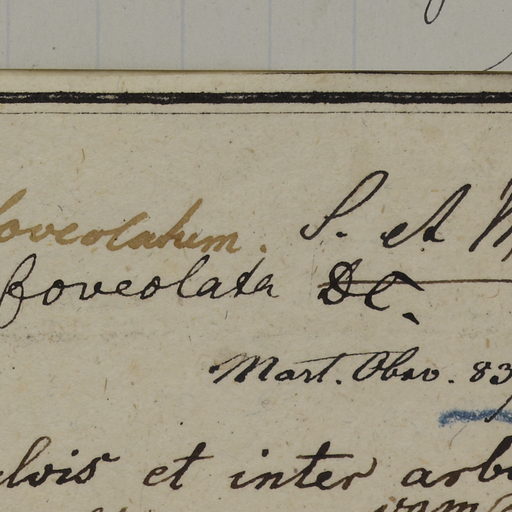 foveolatum. S. et M
foveolata DC.
Mart. Obsv. 83
elvis et inter arb